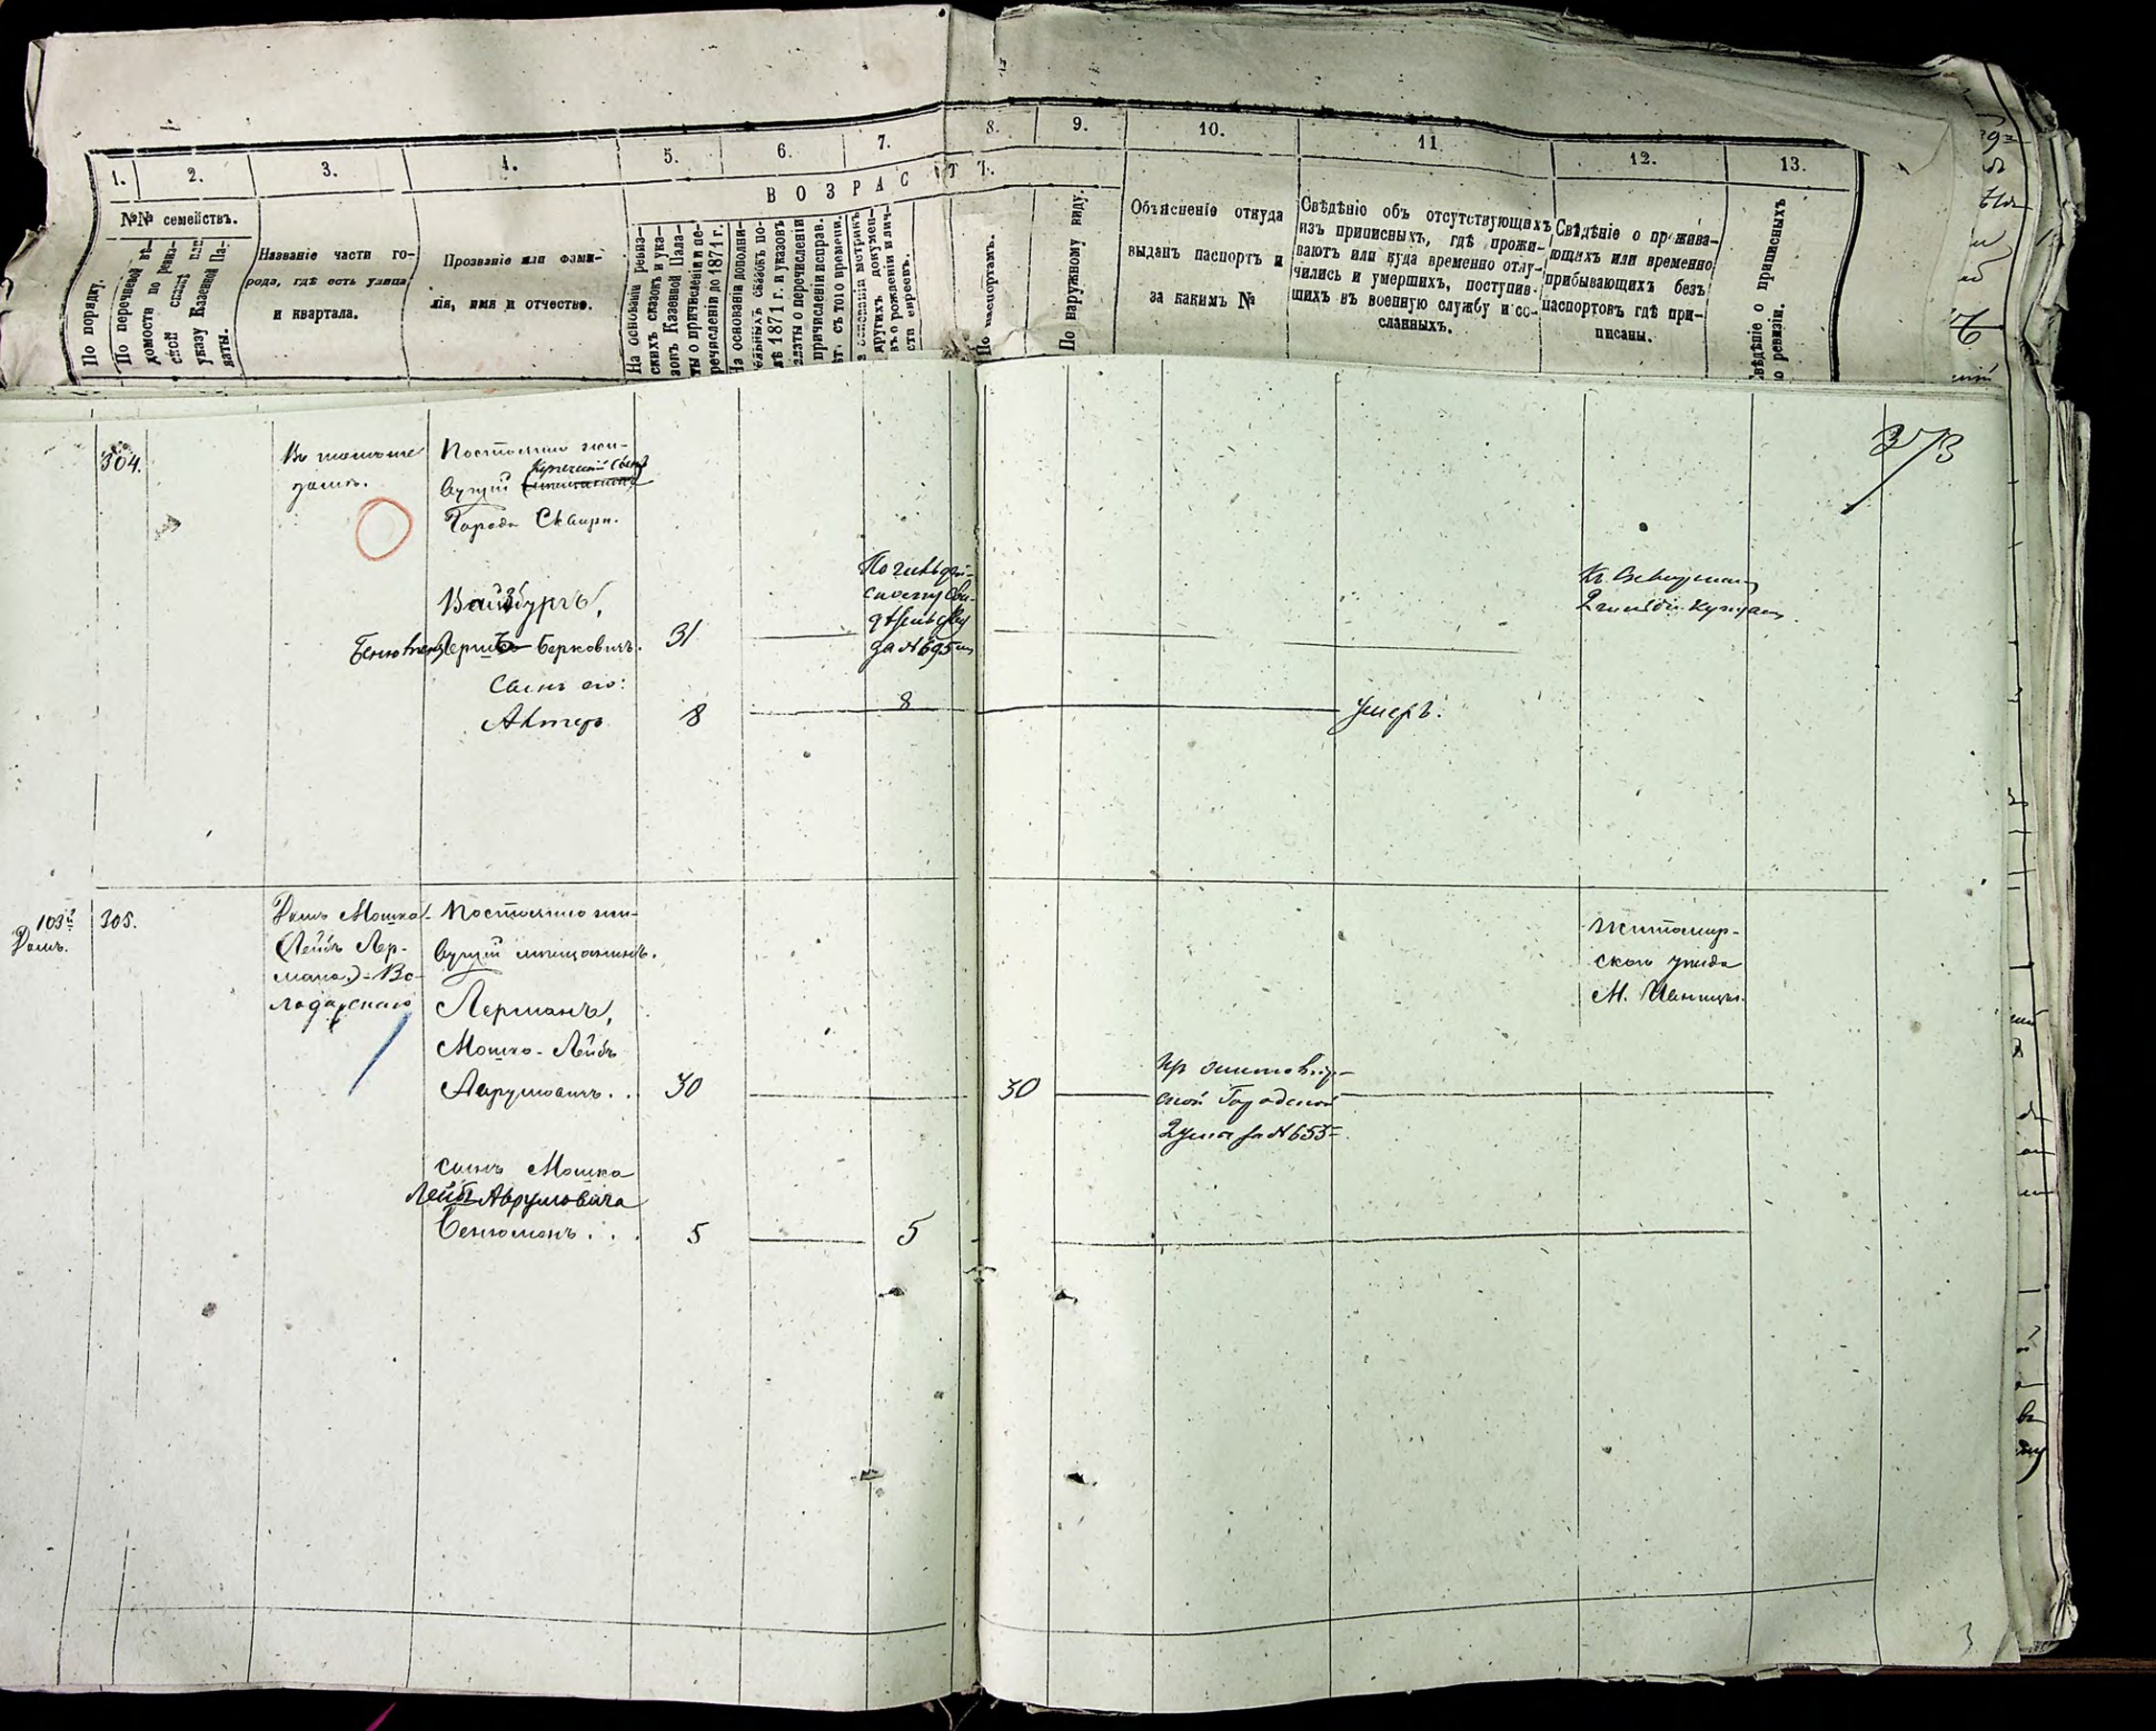 1.
2.
3.
4.
5.
6.
7.
8.
9.
10.
11.
12.
13.
ВОЗРАСТЪ.
№№ семействъ.
По порядку.
По перечневой вѣ-
домости по ревиз-
ской сказкѣ или
указу Казенной Па-
латы.
Названіе части го-
рода, гдѣ есть улица
и квартала.
Прозваніе или фами-
лія, имя и отчество.
На основаніи ревиз-
скихъ сказокъ и ука-
зовъ Казенной Пала-
ты о причисленіи и пе-
речисленіи до 1871 г.
На основаніи дополни-
тельныхъ сказокъ по-
слѣ 1871 г. и указовъ
Палаты о перечисленіи
причисленіи исправ.
лѣт. съ того времени.
На основаніи метрикъ
другихъ докумен-
въ о рожденіи и лич-
сти евреевъ.
По паспортамъ.
По наружному виду.
Объясненіе откуда
выданъ паспортъ и
за какимъ №
Свѣдѣніе объ отсутствующихъ
изъ приписныхъ, гдѣ прожи-
ваютъ или куда временно отлу-
чились и умершихъ, поступив-
шихъ въ военную службу и со-
сланныхъ.
Свѣдѣніе о прожива-
ющихъ или временно
прибывающихъ безъ
паспортовъ гдѣ при-
писаны.
Свѣдѣніе о приписныхъ
по ревизіи.
304.
Въ томъ же
домѣ.
Постоянно жи-
Купеческій Сынъ
вущій
Города Сквири.
Вайзбургъ,
Берковичъ.
31
за № 695
2 гильдіи купцам
Сынъ его:
8
8
умеръ.
373
103й
Домъ.
305.
Домъ Мошка
Лейбъ Лер-
мана) - Во-
лодарскаго
Постоянно жи-
вущій мѣщанинъ.
Лерманъ,
Мошко-Лейбъ
Аврумовичъ..
30
30
ской Городской
Думы за № 653
Житомир-
скаго уѣзда
М. Ивницы.
сынъ Мошка
Лейбъ Аврумовича
Бенюминъ...
5
5